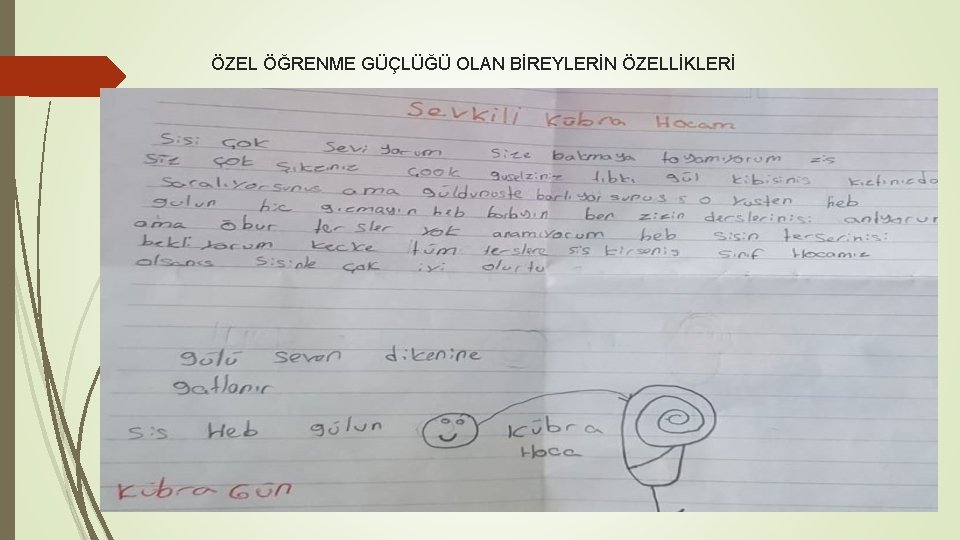 ÖZEL ÖĞRENME GÜÇLÜĞÜ OLAN BİREYLERİN ÖZELLİKLERİ
Sevkili Kübra Hocam
Sisi çok sevi yorum size bakmaya toyamıyorum zis
siz çok şikeniz çook guselziniz tıbkı gül kibisinis kızfınızda
saralıyorsunus ama güldunoste barlıyor sunus o yusten heb
gulun hic gızmayın heb barbuyın ben zizin derslerinisi anlıyorum
ama öbur ter sler yok anamıyorum heb sisin terserinisi
bekli yorum kecke tüm terslere sis kirsenis sınıf Hocamız
olsanıs sisinle çok iyi olurtu
gülü seven dikenine
gatlanır
sis Heb gülun
Kübra
Hoca
Kübra Gün